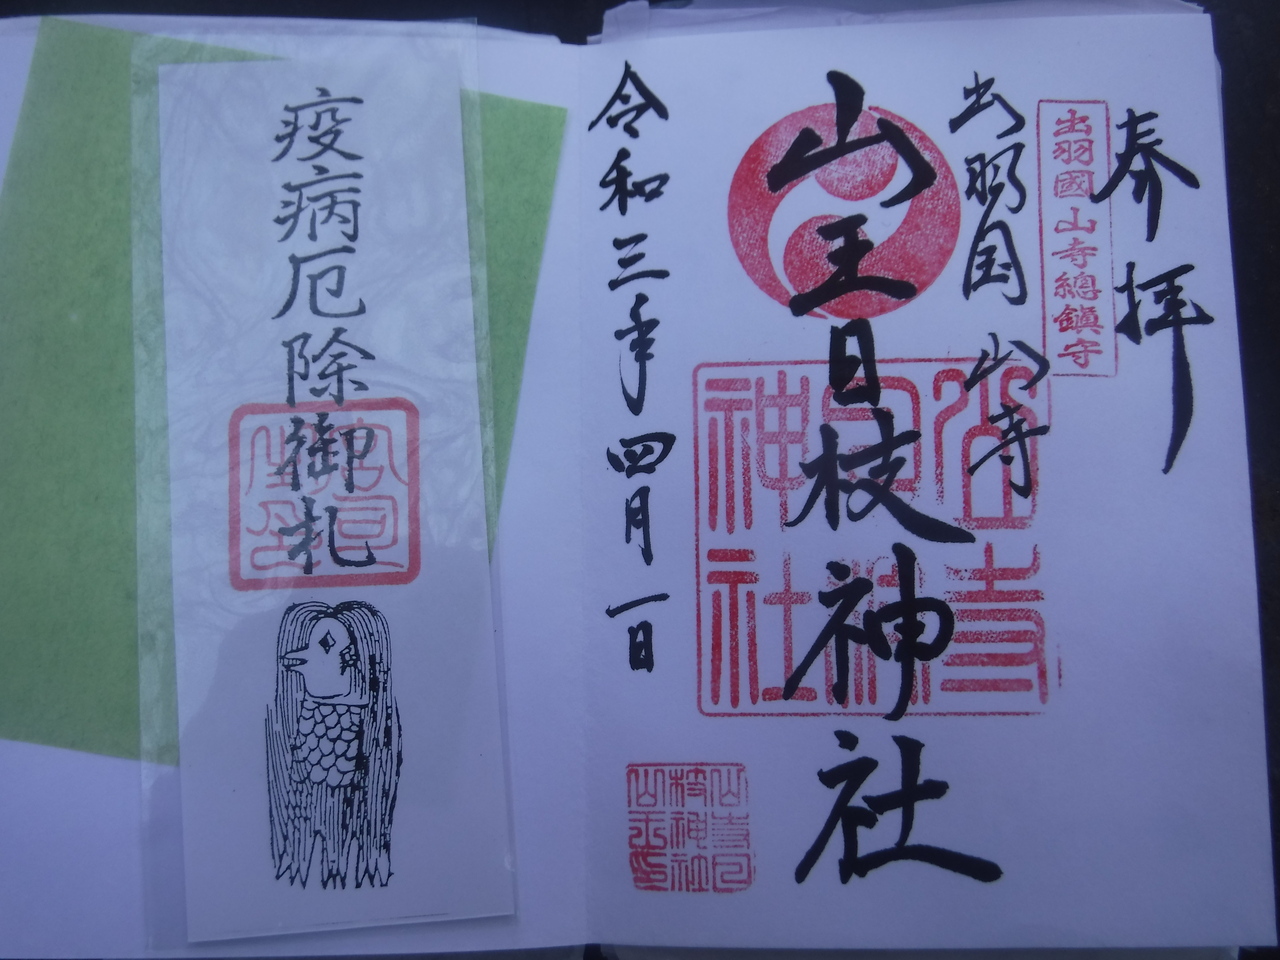 奉拝
出羽國山寺總鎮守
出羽国 山寺
山王日枝神社
山寺日枝神社
令和三年四月一日
疫病厄除御札